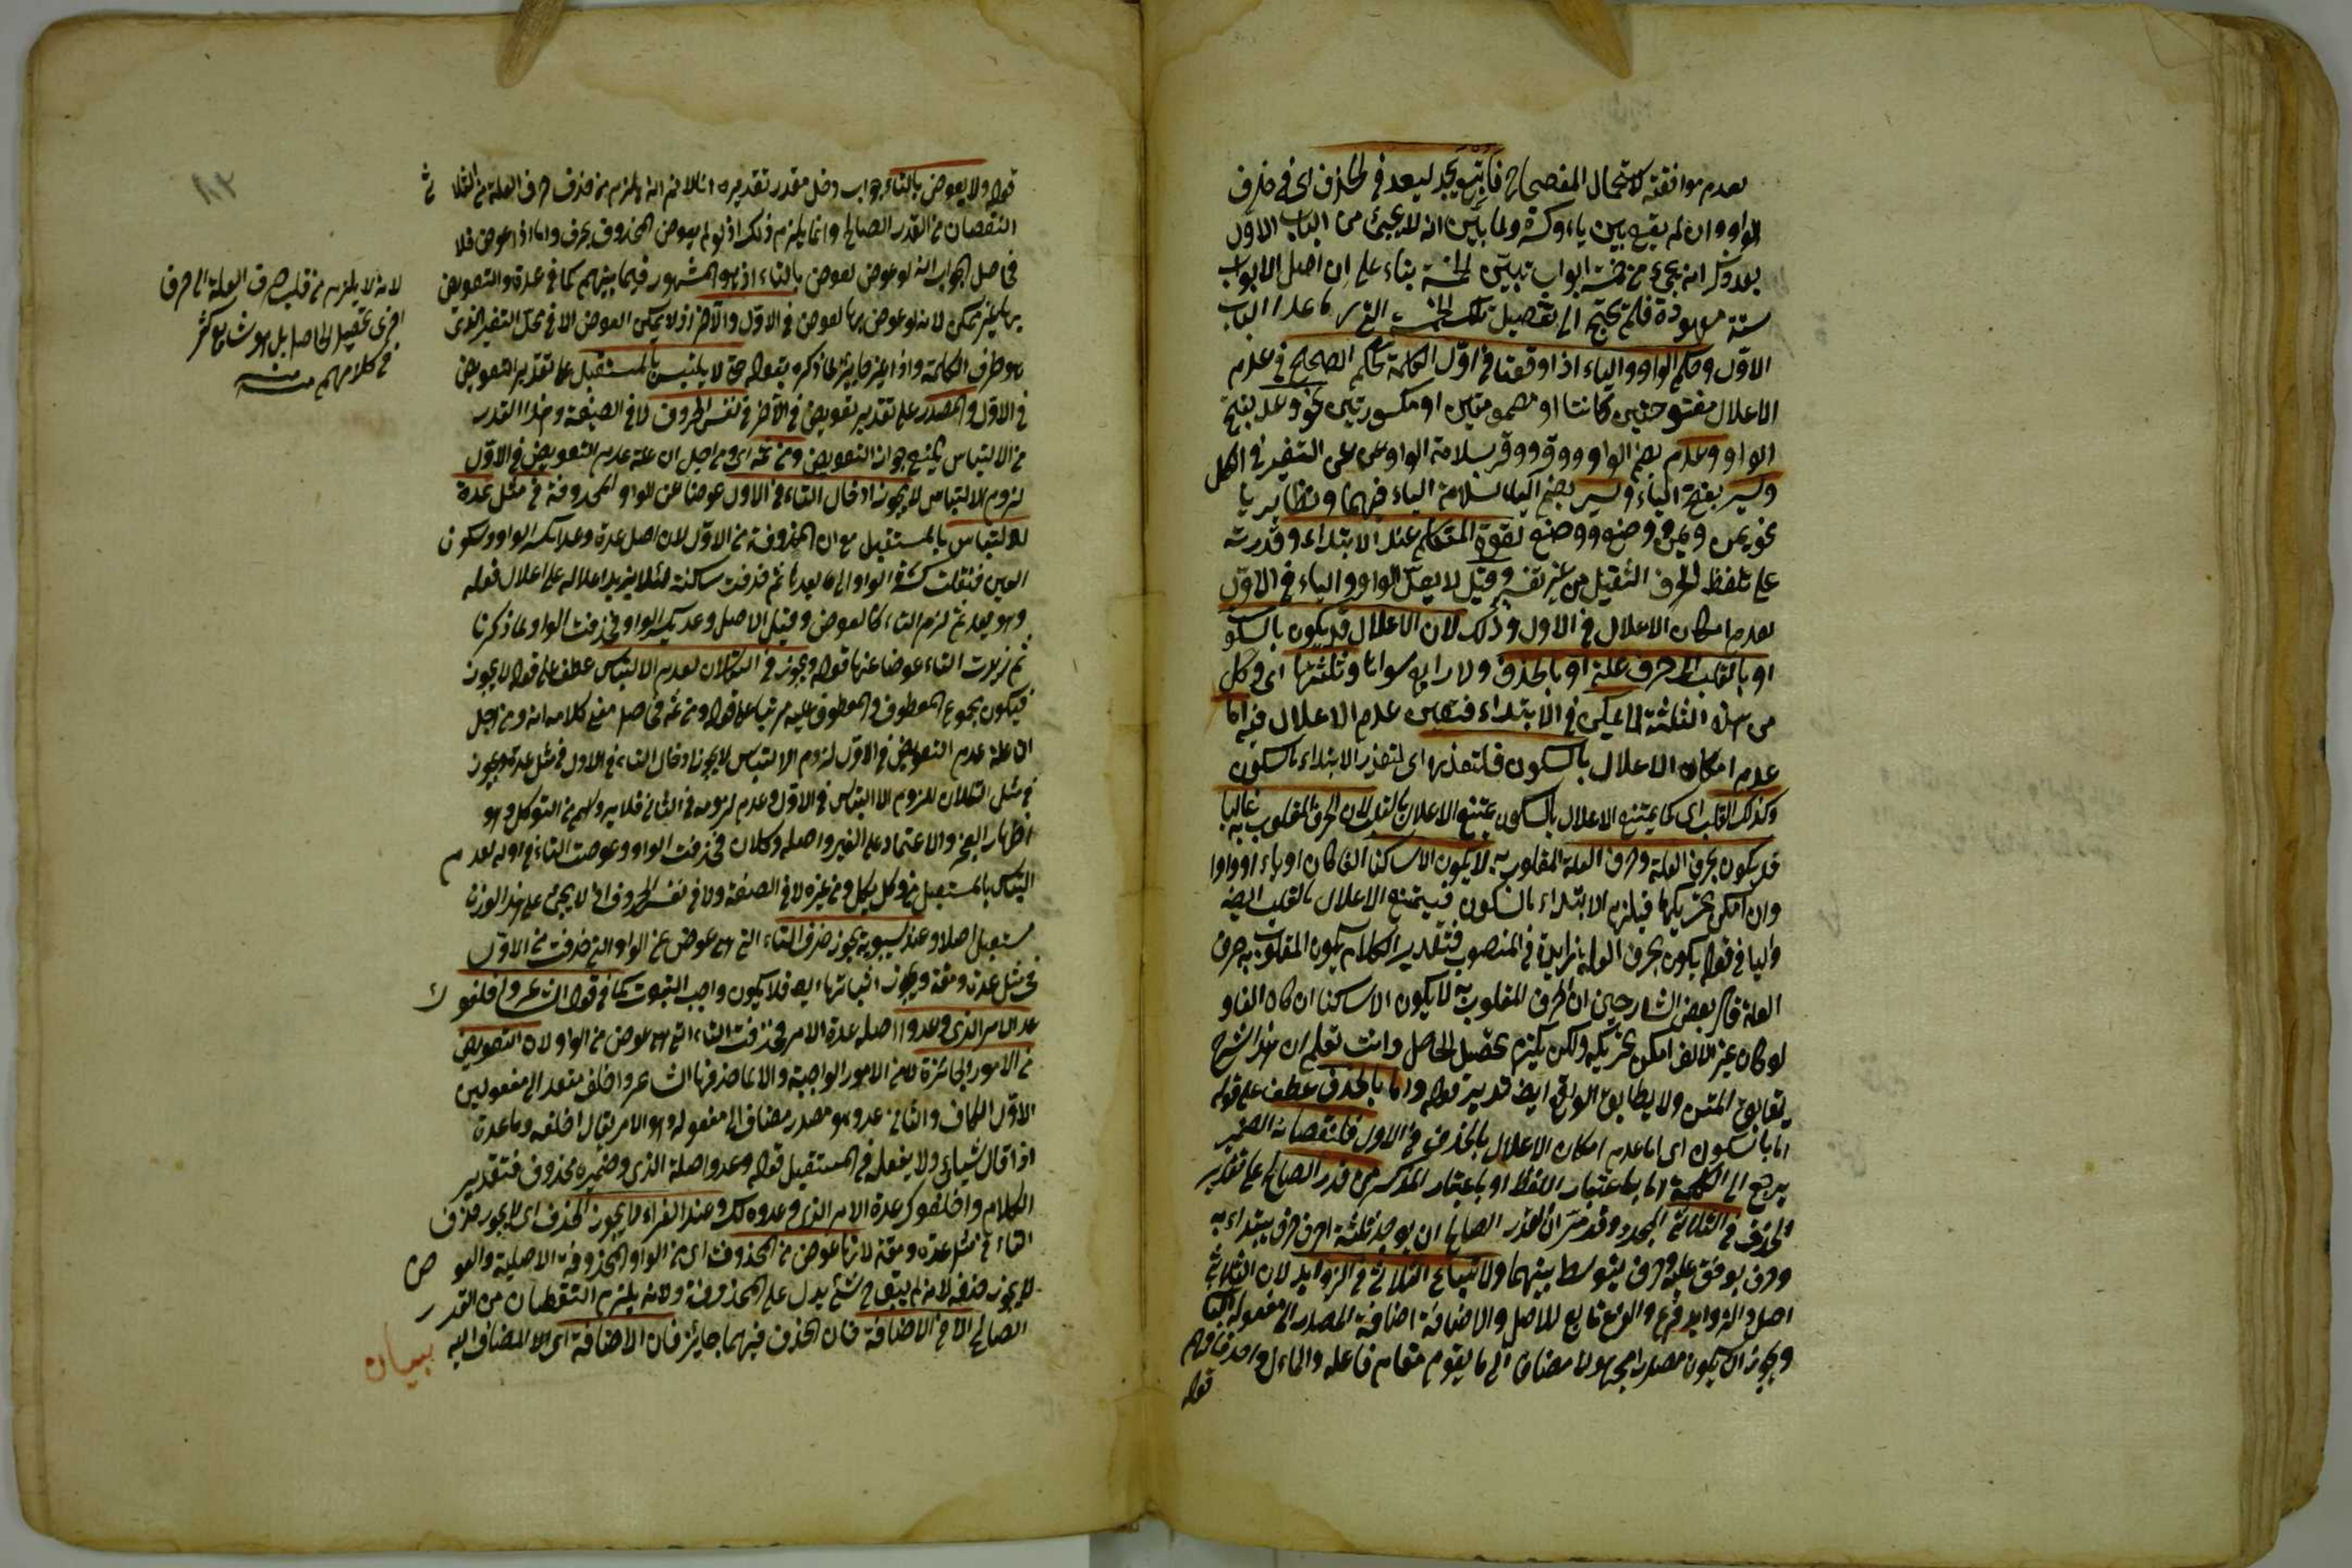 لعدم موافقته لاستعمال الفصحاء فاتبع يجد ليعد في الحذف اى في حذف
الواو وان لم يقع بين ياء وكسرة ولما بين انه لا يجئ من الباب الاول
بعد ذكر انه يجئ من خمسة ابواب تبين الخمسة بناء على ان اصل الابواب
ستة معهودة فلم يحتج الى تفصيل تلك الخمسة التى ما عدا الباب
الاول وحكم الواو والياء اذا وقعتا فى اول الكلمة كحكم الصحيح فى عدم
الاعلال مفتوحتين كانتا او مضمومتين او مكسورتين نحو وعد بفتح
الواو ووعد بضم الواو ووقر ووقر بسلامة الواو عن التغير فى الكل
ويسر بفتح الياء ويسر بضم الياء لسلامة الياء فيهما ونظايرها
نحو يمن ويمن ووضع ووضع لقوة المتكلم عند الابتداء وقدرته
على تلفظ الحرف الثقيل من غير تغير وقيل لا يعل الواو والياء فى الاول
لعدم امكان الاعلال فى الاول وذلك لان الاعلال قد يكون بالسكون
او بالقلب الى حرف علة او بالحذف ولا رابع سواها وثلثتها اى وكل
من هذه الثلثة لا يمكن فى الابتداء فتعين عدم الاعلال فيه اما
عدم امكان الاعلال بالسكون فلتعذره اى لتعذر الابتداء بالسكون
وكذلك القلب اى كما يمتنع الاعلال بالسكون يمتنع الاعلال بالقلب لان الحرف المقلوب به غالبا
قد يكون بحرف العلة وحرف العلة المقلوب به لا يكون الا ساكنا الفا كان او ياء او واوا
وان امكن تحريكها فيلزم الابتداء بالسكون فيمتنع الاعلال بالقلب ايضا
والباء فى قوله يكون بحرف العلة زايدة فى المنصوب فتقدير الكلام يكون المقلوب به حرف
العلة قال بعض الشارحين ان الحرف المقلوب به لا يكون الا ساكنا ان كان الفا و
لو كان غير الالف امكن تحريكه ولكن يلزم تحصيل الحاصل وانت تعلم ان هذا الشرح
يطابق المتن ولا يطابق الواقع ايضا تدبر قوله واما بالحذف عطف على قوله
اما بالسكون اى اما عدم امكان الاعلال بالحذف فى الاول فلنقصانه الضمير
يرجع الى الكلمة اما باعتبار اللفظ او باعتبار المذكور من قدر الصالح على تقدير
الحذف فى الثلاثى المجرد وقد مر ان القدر الصالح ان يوجد ثلثة احرف حرف يبتداء به
وحرف يوقف عليه وحرف يتوسط بينهما ولاتباع الثلاثى فى الزوايد لان الثلاثى
اصل والزوايد فرع والفرع تابع للاصل والاضافة اضافة المصدر الى مفعوله
ويجوز ان يكون مصدرا مجهولا مضافا الى ما يقوم مقام فاعله والمال واحد فافهم
قوله
قوله ولا يعوض بالتاء جواب دخل مقدر تقديره انا لا نم انه يلزم من حذف حرف العلة من الثلاثى
النقصان من القدر الصالح وانما يلزم ذلك ان لو لم يعوض المحذوف بحرف واما اذا عوض فلا
فحاصل الجواب انه لو عوض لعوض بالتاء اذ هو المشهور فيما بينهم كما فى عدة والتعويض
بها غير ممكن لانه لو عوض بها لعوض فى الاول والاخر اذ لا يمكن العوض الا فى محل التغير الذى
هو طرف الكلمة واذا لم يجز لما ذكره بقوله حتى لا يلتبس بالمستقبل على تقدير التعويض
فى الاول والمصدر على تقدير تعويض فى الاخر فى نفس الحروف لا فى الصيغة وهذا القدر
من الالتباس يمنع جواز التعويض ومن ثمه اى ومن اجل ان علة عدم التعويض فى الاول
لزوم الالتباس لا يجوز ادخال التاء فى الاول عوضا عن الواو المحذوفة فى مثل عدة
للالتباس بالمستقبل مع ان المحذوفة من الاول لان اصل عدة وعد بكسر الواو وسكون
العين فنقلت كسرة الواو الى ما بعدها ثم حذفت ساكنة لئلا يزيد اعلاله على اعلال فعله
وهو يعد ثم لزم التاء كالعوض وقيل الاصل وعد بكسر الواو فحذفت الواو لما ذكرنا
ثم زيدت التاء عوضا عنها قوله ويجوز فى التكلان لعدم الالتباس عطف على قوله لا يجوز
فيكون مجموع المعطوف والمعطوف عليه مرتبا على قوله ومن ثمه فحاصل معنى كلامه انه ومن اجل
ان علة عدم التعويض فى الاول لزوم الالتباس لا يجوز ادخال التاء فى الاول فى مثل عدة ويجوز
فى مثل التكلان للزوم الالتباس فى الاول وعدم لزومه فى الثانى فلا يرد وهو من التوكل وهو
اظهار العجز والاعتماد على الغير واصله وكلان فحذفت الواو وعوضت التاء فى اوله لعدم
التباس بالمستقبل من وكل يكل ومن غيره لا فى الصيغة ولا فى نفس الحروف اذ لا يجئ على هذا الوزن
مستقبل اصلا وعند سيبويه يجوز حذف التاء التى هى عوض عن الواو التى حذفت من الاول
فى مثل عدة ومقة ويجوز اثباتها ايضا فلا يكون واجب الثبوت كما فى قول الشاعر واخلفوك
عد الامر الذى وعدوا اصله عدة الامر فحذفت التاء التى هى عوض من الواو لان التعويض
من الامور الجائزة لا من الامور الواجبة والا لما حذفها الشاعر واخلف متعد الى مفعولين
الاول الكاف والثانى عد وهو مصدر مضاف الى مفعوله وهو الامر يقال اخلفه وما عدة
اذا قال شيئا ولا يفعله فى المستقبل قوله وعدوا صلة الذى وضميره محذوف فتقدير
الكلام واخلفوك عدة الامر الذى وعدوه لك وعند الفراء لا يجوز الحذف اى لا يجوز حذف
التاء فى مثل عدة ومقة لانها عوض من المحذوفة اى من الواو المحذوفة الاصلية والعوض
لا يجوز حذفه لانه لم يبق ح شئ يدل على المحذوفة ولانه يلزم النقصان من القدر
الصالح الا فى الاضافة فان الحذف فيهما جائز فان الاضافة اى لان المضاف اليه
بيان
لانه لا يلزم من قلب حرف العلة الى حرف
اخرى تحصيل الحاصل بل هو شايع كثير
فى كلامهم منه